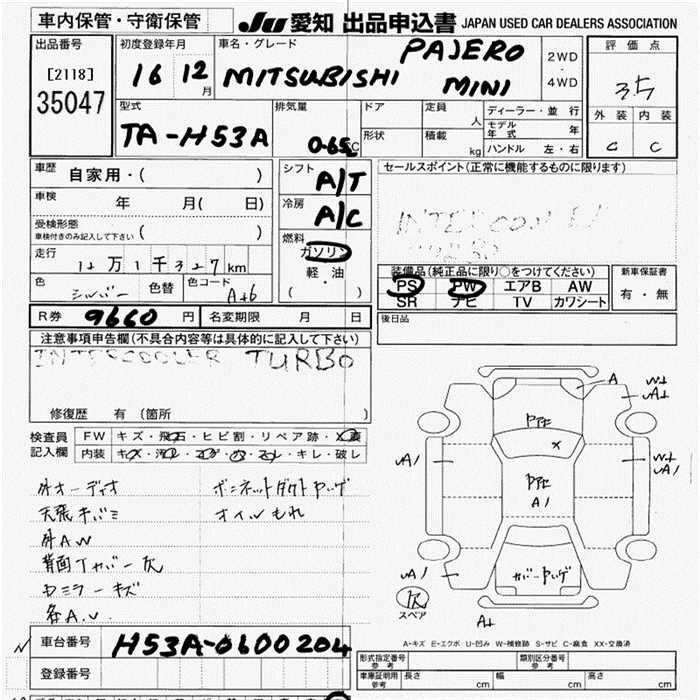 車内保管・守衛保管
JU 愛知 出品申込書 JAPAN USED CAR DEALERS ASSOCIATION
出品番号
[2118]
35047
初度登録年月
16 12月
車名・グレード
MITSUBISHI PAJERO MINI
2WD・4WD
評価点
3.5
外装 内装
C C
型式
TA-H53A
排気量
0.65
ドア
形状
定員 人
積載 kg
ディーラー・並行
モデル年式 年
ハンドル 左・右
車歴 自家用・( )
車検 年 月( 日)
受検形態
車検付きのみ記入して下さい ( )
走行
12万1千327km
色 シルバー 色替 色コード A46
シフト A/T
冷房 A/C
燃料
ガソリン
軽・油
( ・ )
セールスポイント(正常に機能するものに限ります)
INTERCOOLER
TURBO
装備品(純正品に限り○をつけてください)
PS PW エアB AW
SR ナビ TV カワシート
新車保証書
有・無
後日品
R券 9660 円 名変期限 月 日
注意事項申告欄(不具合内容等は具体的に記入して下さい)
INTERCOOLER TURBO
修復歴 有(箇所 )
検査員記入欄
FW キズ・飛石・ヒビ割・リペア跡・
内装 キズ・汚れ・コゲ・穴・スレ・キレ・破レ
外オーディオ
天張キバミ
外AW
背面Tカバー欠
ドミラーキズ
各A.U.
ボンネットダクトヤケ
オイルもれ
A
W±
A±
アトヒ
×
アトヒ
A1
A1
W±
A1
A1
カバーヤケ
欠
スペア
A±
A-キズ E-エクボ U-凹み W-補修跡 S-サビ C-腐食 XX-交換済
車台番号 H53A-0600204
登録番号
形式指定番号 参考
類別区分番号 参考
車庫証明用 参考
長さ cm 幅 cm 高さ cm